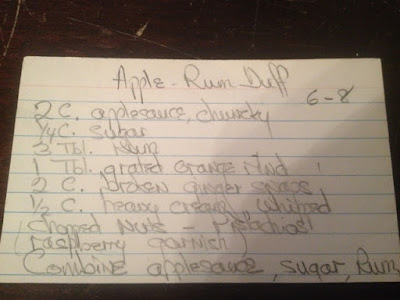 Apple-Rum-Duff
6-8
2 C. applesauce, chuncky
1/4 C. sugar
2 Tbl. Rum
1 Tbl. grated orange rind
2 C. broken ginger snaps
1/2 C. heavy cream, whipped
chopped nuts - Pistachios!
(raspberry garnish)
Combine applesauce, sugar, Rum,